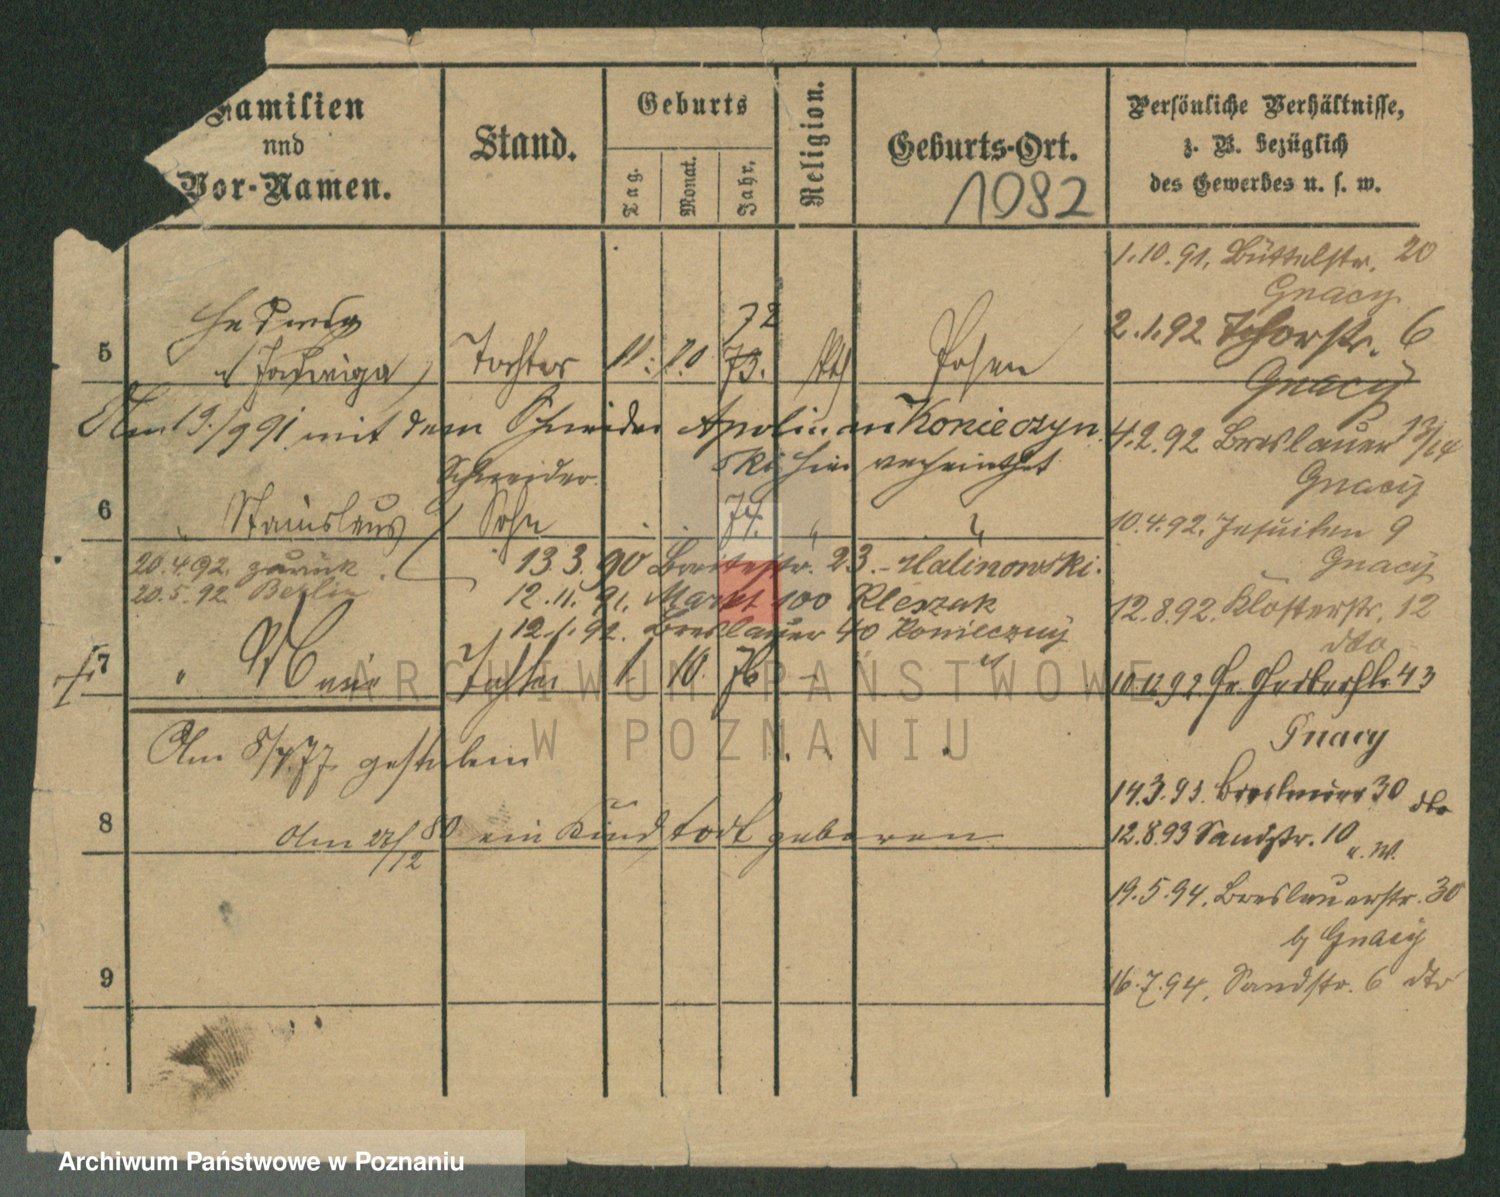 Familien
und
Vor-Namen.
Stand.
Geburts
Tag.
Monat.
Jahr.
Religion.
Geburts-Ort.
1082
Persönliche Verhältnisse,
z. B. bezüglich
des Gewerbes u. s. w.
1.10.91. Büttelstr. 20
Gnacy
72
2.1.92 Thorstr. 6
Gnacy
Hedwig
5 (Jadwiga) Tochter 11. 10. 73. kth Posen
Am 19./9 91 mit dem Schneider Apolinar Konieczyn
ski hier verheirathet
Schneider.
4.2.92 Breslauer 13/14
Gnacy
6 " Stanislaus Sohn 74. " "
10.4.92. Jesuiten 9
Gnacy
20.4.92 zurück
20.5.92 Berlin
13.3.90 Breitestr. 23. - Malinowski.
12.11.91. Markt 100 Kleszak
12.1.92. Breslauer 40 Konieczny
12.8.92. Klosterstr. 12
dto
7 " Marie Tochter 1. 10. 76 -
10.12.92 Gr. Gerberstr 43
Gnacy
Am 8/4.77 gestorben
14.3.93. Breslauer 30 dto
12.8.93 Sandstr. 10
8 Am 27/12 80 ein Kind todt geboren
19.5.94. Breslauerstr. 30
b/ Gnacy
16.7.94. Sandstr. 6 dto
9
ARCHIWUM PAŃSTWOWE
W POZNANIU
Archiwum Państwowe w Poznaniu